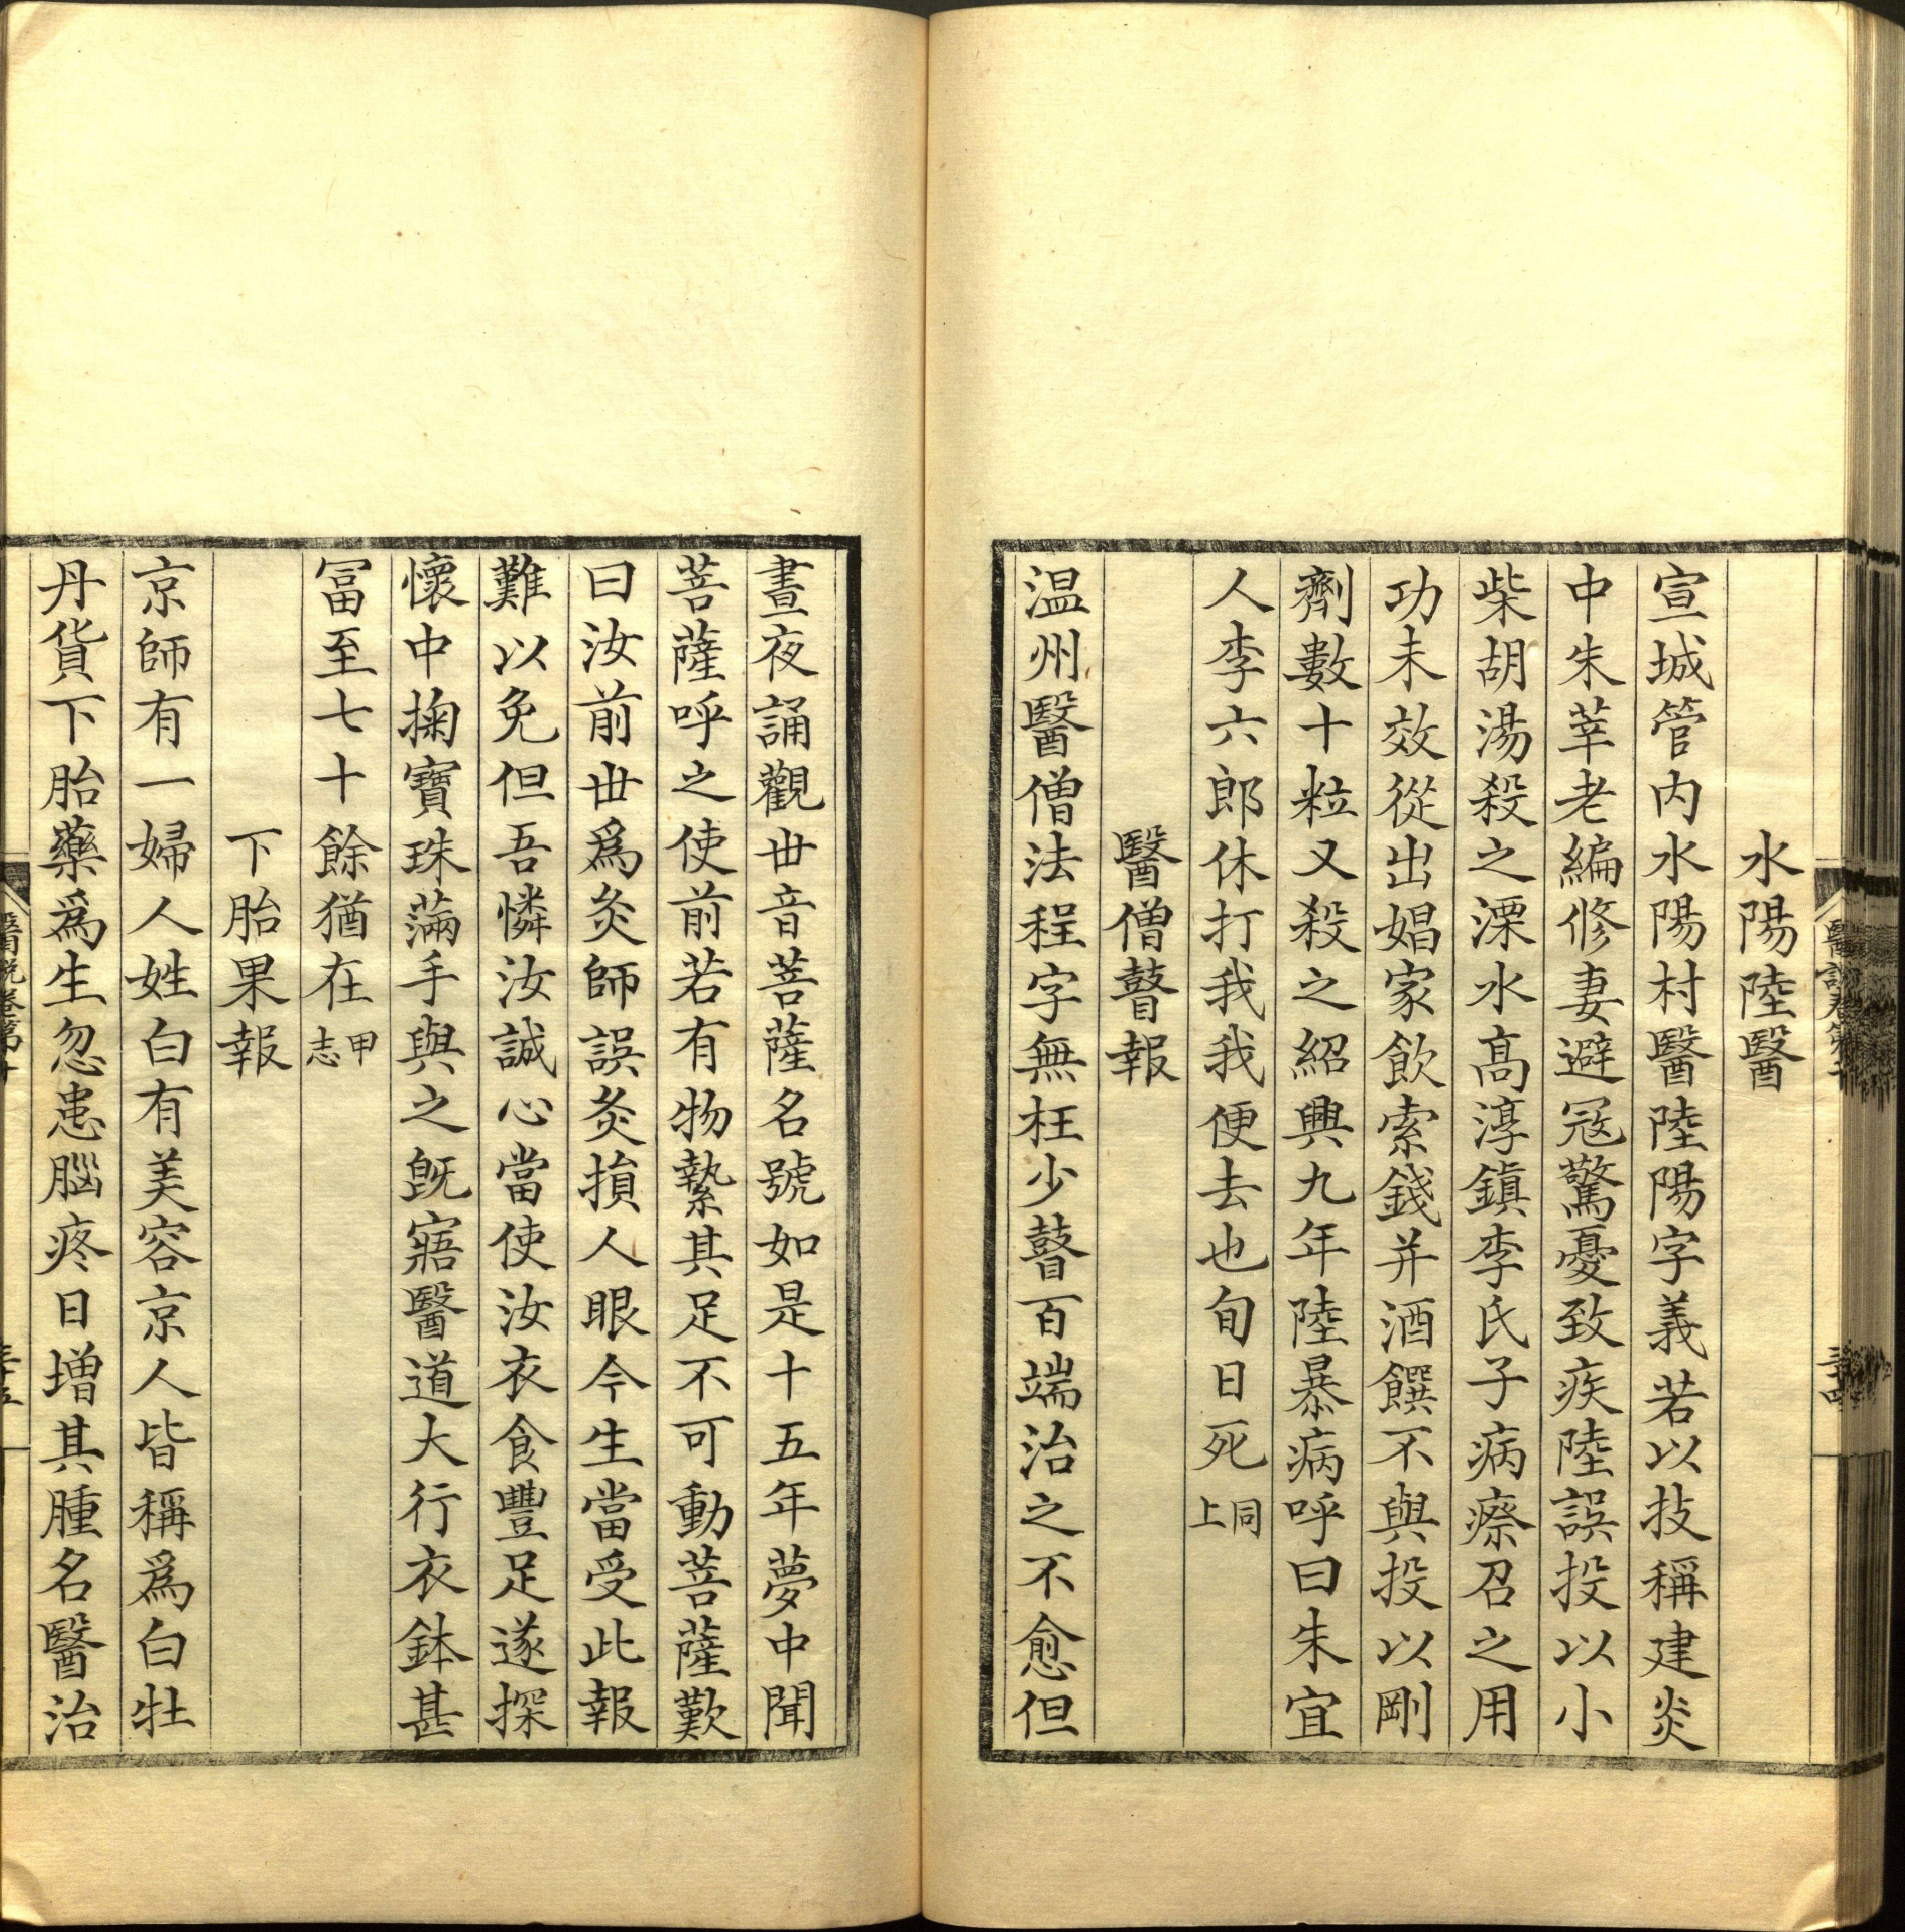 水陽陸醫
宣城管内水陽村醫陸陽字義若以技稱建炎
中朱莘老編修妻避冦驚憂致疾陸誤投以小
柴胡湯殺之溧水高淳鎮李氏子病瘵召之用
功未效從出娼家飲索錢并酒饌不與投以剛
劑數十粒又殺之紹興九年陸暴病呼曰朱宜
人李六郎休打我我便去也旬日死同上
醫僧瞽報
温州醫僧法程字無枉少瞽百端治之不愈但
晝夜誦觀丗音菩薩名號如是十五年夢中聞
菩薩呼之使前若有物縶其足不可動菩薩歎
曰汝前丗爲灸師誤灸損人眼今生當受此報
難以免但吾憐汝誠心當使汝衣食豐足遂探
懷中掬寶珠滿手與之旣寤醫道大行衣鉢甚
冨至七十餘猶在甲志
下胎果報
京師有一婦人姓白有美容京人皆稱爲白牡
丹貨下胎藥爲生忽患腦疼日增其腫名醫治